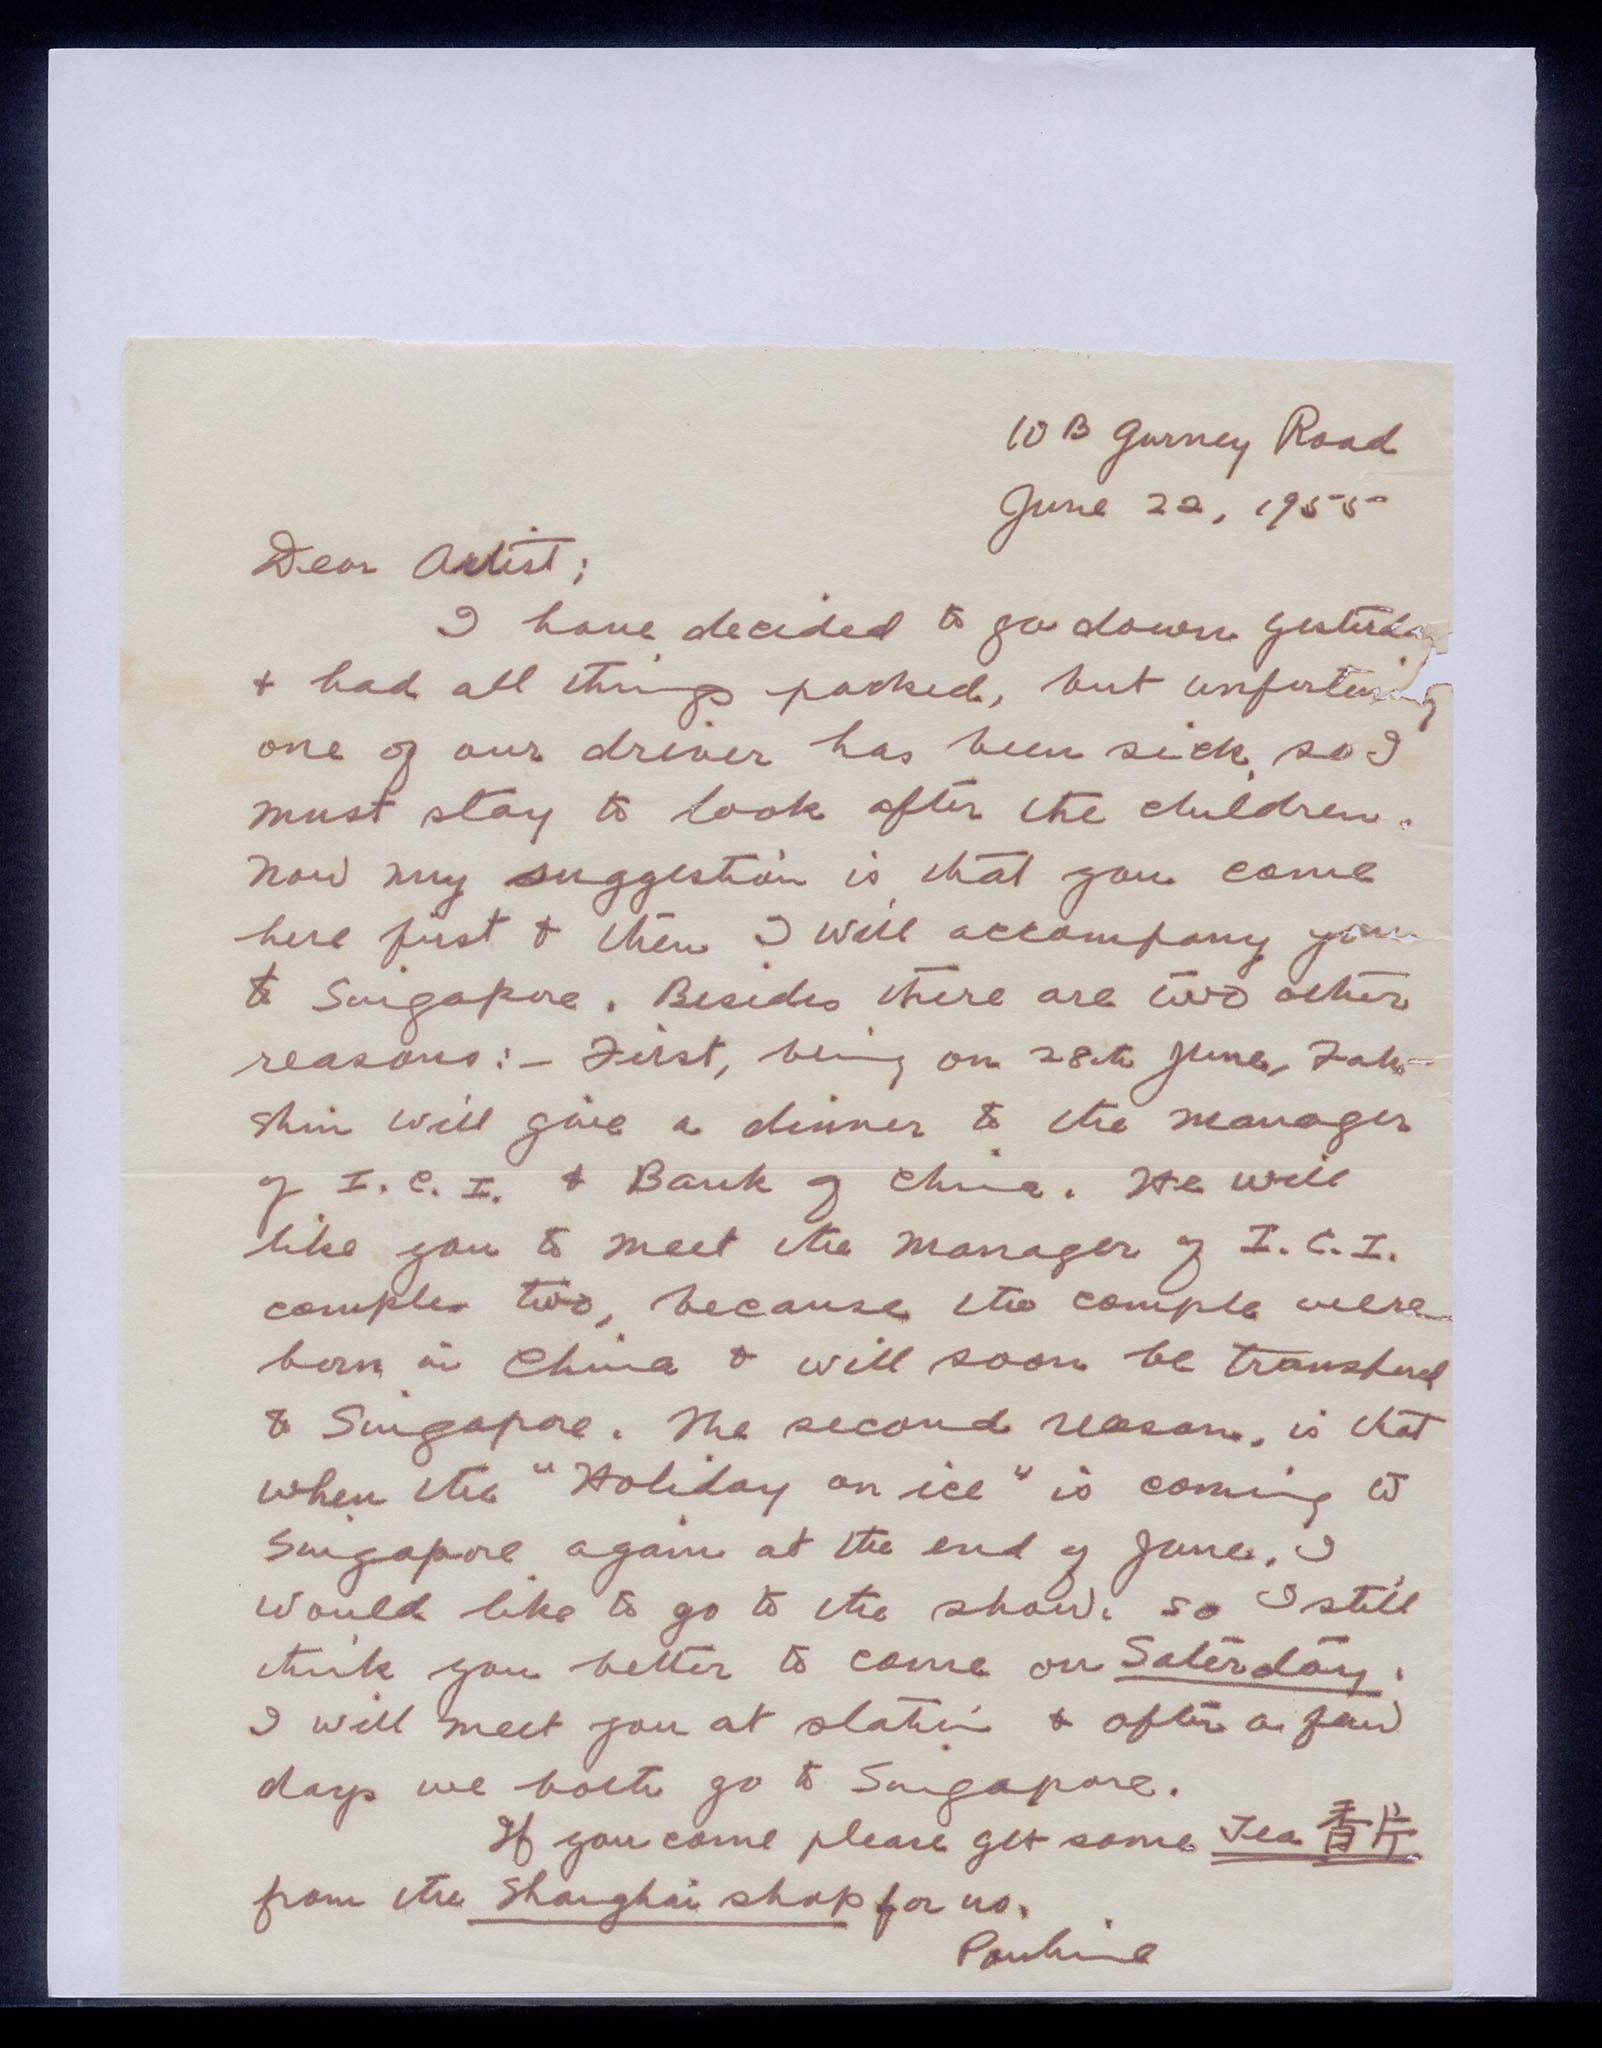 10 B Gurney Road
June 22, 1955
Dear Artist;
I have decided to go down yesterday
+ had all things packed, but
one of our driver has been sick, so I
must stay to look after the children.
Now my suggestion is that you come
here first + then I will accompany you
to Singapore. Besides there are two other
reasons:- First, being on 28th June, Fah-
shin will give a dinner to the manager
of I.C.I. + Bank of China. He will
like you to meet the manager of I.C.I.
couple two, because the couple were
born in China + will soon be transfered
to Singapore. The second reason, is that
when the "Holiday on ice" is coming to
Singapore again at the end of June, I
would like to go to the show. So I still
think you better to come on Saterday.
I will meet you at station + after a few
days we both go to Singapore.
If you come please get some Tea 香片
from the Shanghai shop for us.
Pauline